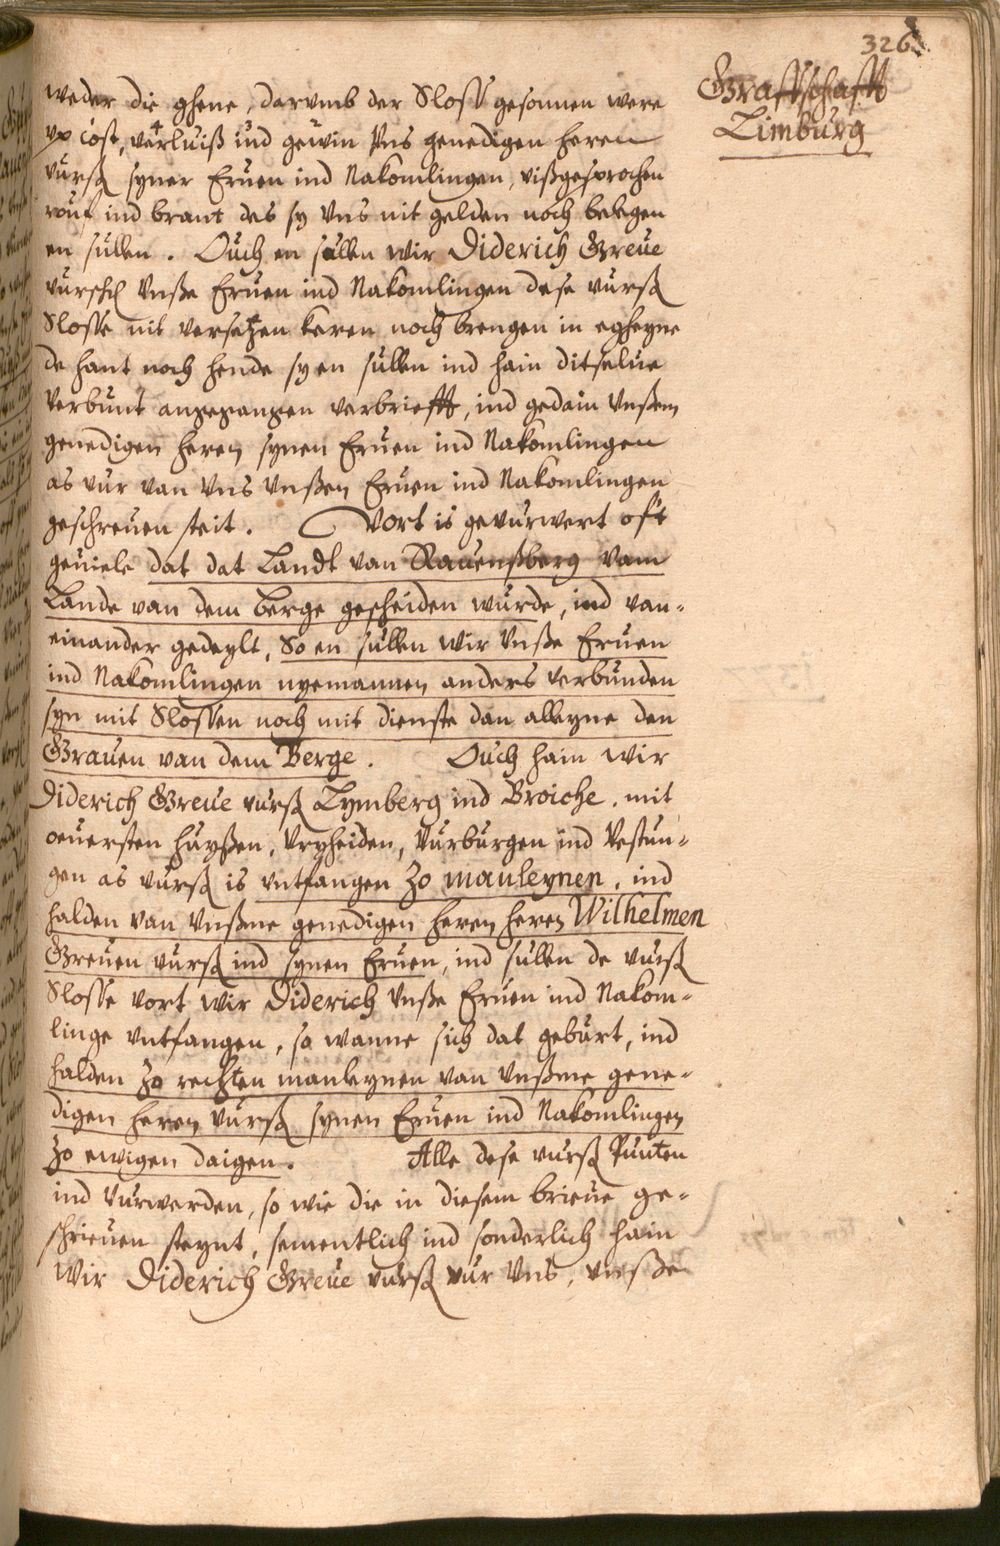 326
Graffschafft
Limburg
weder die ghene, darvmb der Sloss gesonnen were
vp cost, verluiß ind gewin Vns genedigen heren
vurß syner Eruen ind Nakomlingen, vißgesprochen
rouf ind brant des sy vns nit gelden noch belegen
en sullen. Ouch en sullen wir Diderich Greue
vursch vnße Eruen ind Nakomlingen dese vurß
Slosse nit versetzen keren noch brengen in egheyne
de hant noch hende sy en sullen ind hain ditselue
verbunt angegangen verbriefft, ind gedain vnßem
genedigen heren synen Eruen ind Nakomlingen
as vur van vns vnßen Eruen ind Nakomlingen
geschreuen steit. Vort is gevurwert oft
geuiele dat dat Landt van Rauenßberg vam
Lande van dem berge gescheiden wurde, ind van-
einander gedeylt, So en sullen wir vnße Eruen
ind Nakomlingen nyemannen anders verbunden
syn mit Slossen noch mit dienste dan alleyne den
Grauen van dem Berge. Ouch hain wir
Diderich Greue vurß Lymberg ind Broiche. mit
oeuersten huyßen, vryheiden, vurburgen ind vestun-
gen as vurß is vntfangen zo manleynen, ind
halden van vnßme genedigen heren heren Wilhelmen
Greuen vurß ind synen Eruen, ind sullen de vurß
Slosse vort wir Diderich vnße Eruen ind Nakom-
linge vntfangen, so wanne sich dat geburt, ind
halden zo rechten manleynen van vnßme gene-
digen heren vurß synen Eruen ind Nakomlingen
zo ewigen daigen. Alle dese vurß Punten
ind vurwerden, so wie die in diesem brieue ge-
schrieuen steynt, sementlich ind sonderlich hain
wir Diderich Greue vurß vur vns, vnße